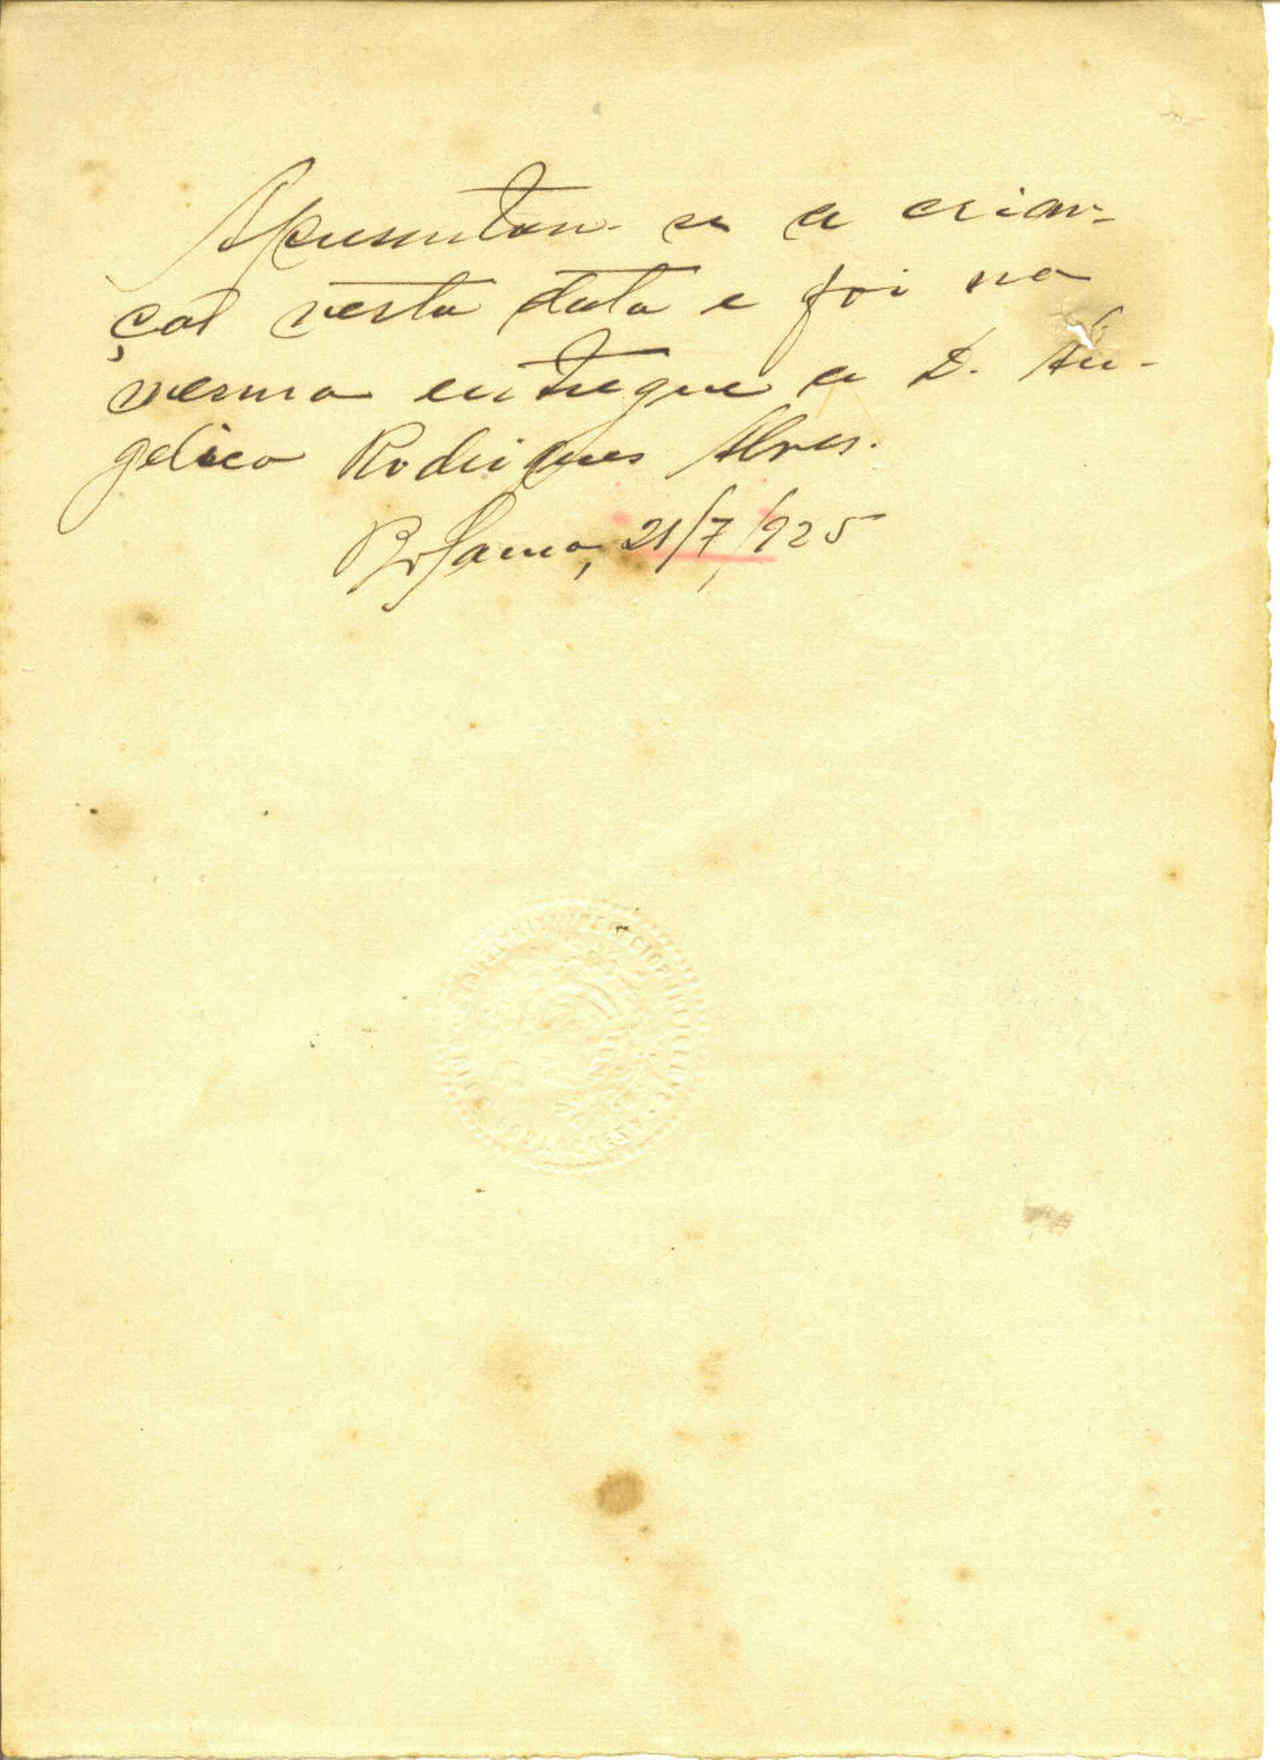 Apresentou-se a crian-
ça nesta data e foi na
mesma entregue a D. An-
gelica Rodrigues Alves.
Bolama, 21/7/925